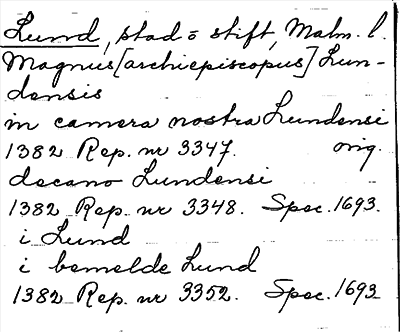 Lund, stad o stift, Malm. l.
Magnus [archiepiscopus] Lun-
densis
in camera nostra Lundensi
1382 Rep. nr 3347. orig.
decano Lundensi
1382 Rep. nr 3348. Spec. 1693.
i Lund
i bemelde Lund
1382 Rep. nr 3352. Spec. 1693